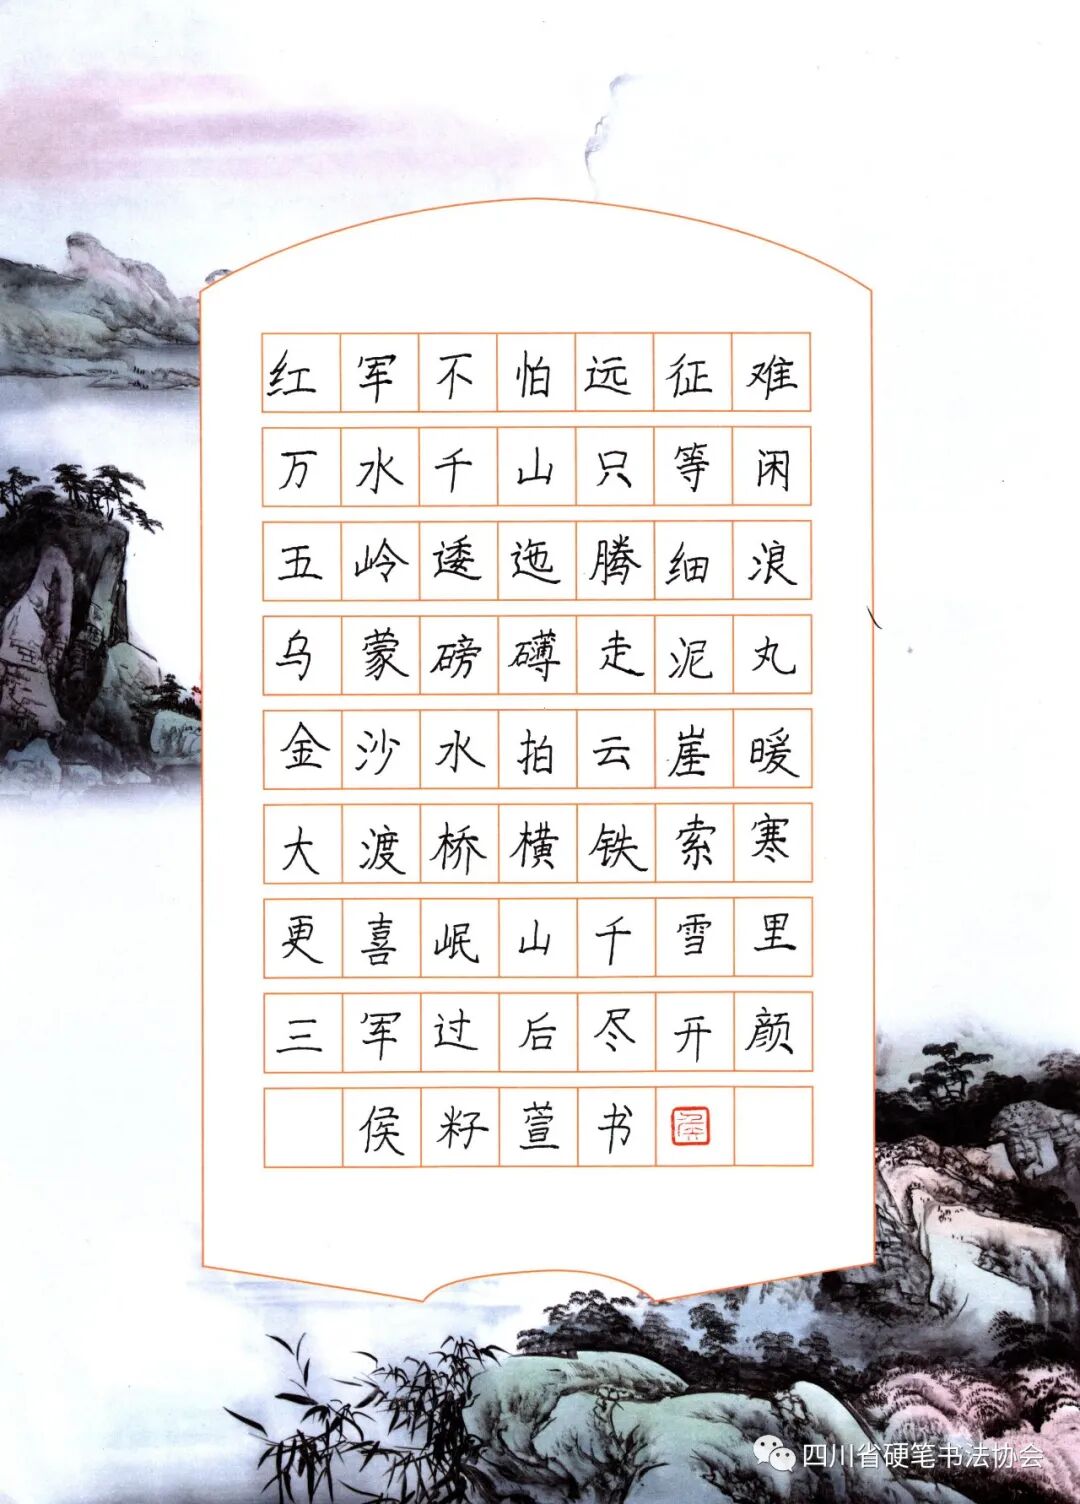 红军不怕远征难
万水千山只等闲
五岭逶迤腾细浪
乌蒙磅礴走泥丸
金沙水拍云崖暖
大渡桥横铁索寒
更喜岷山千雪里
三军过后尽开颜
侯籽萱书
四川省硬笔书法协会